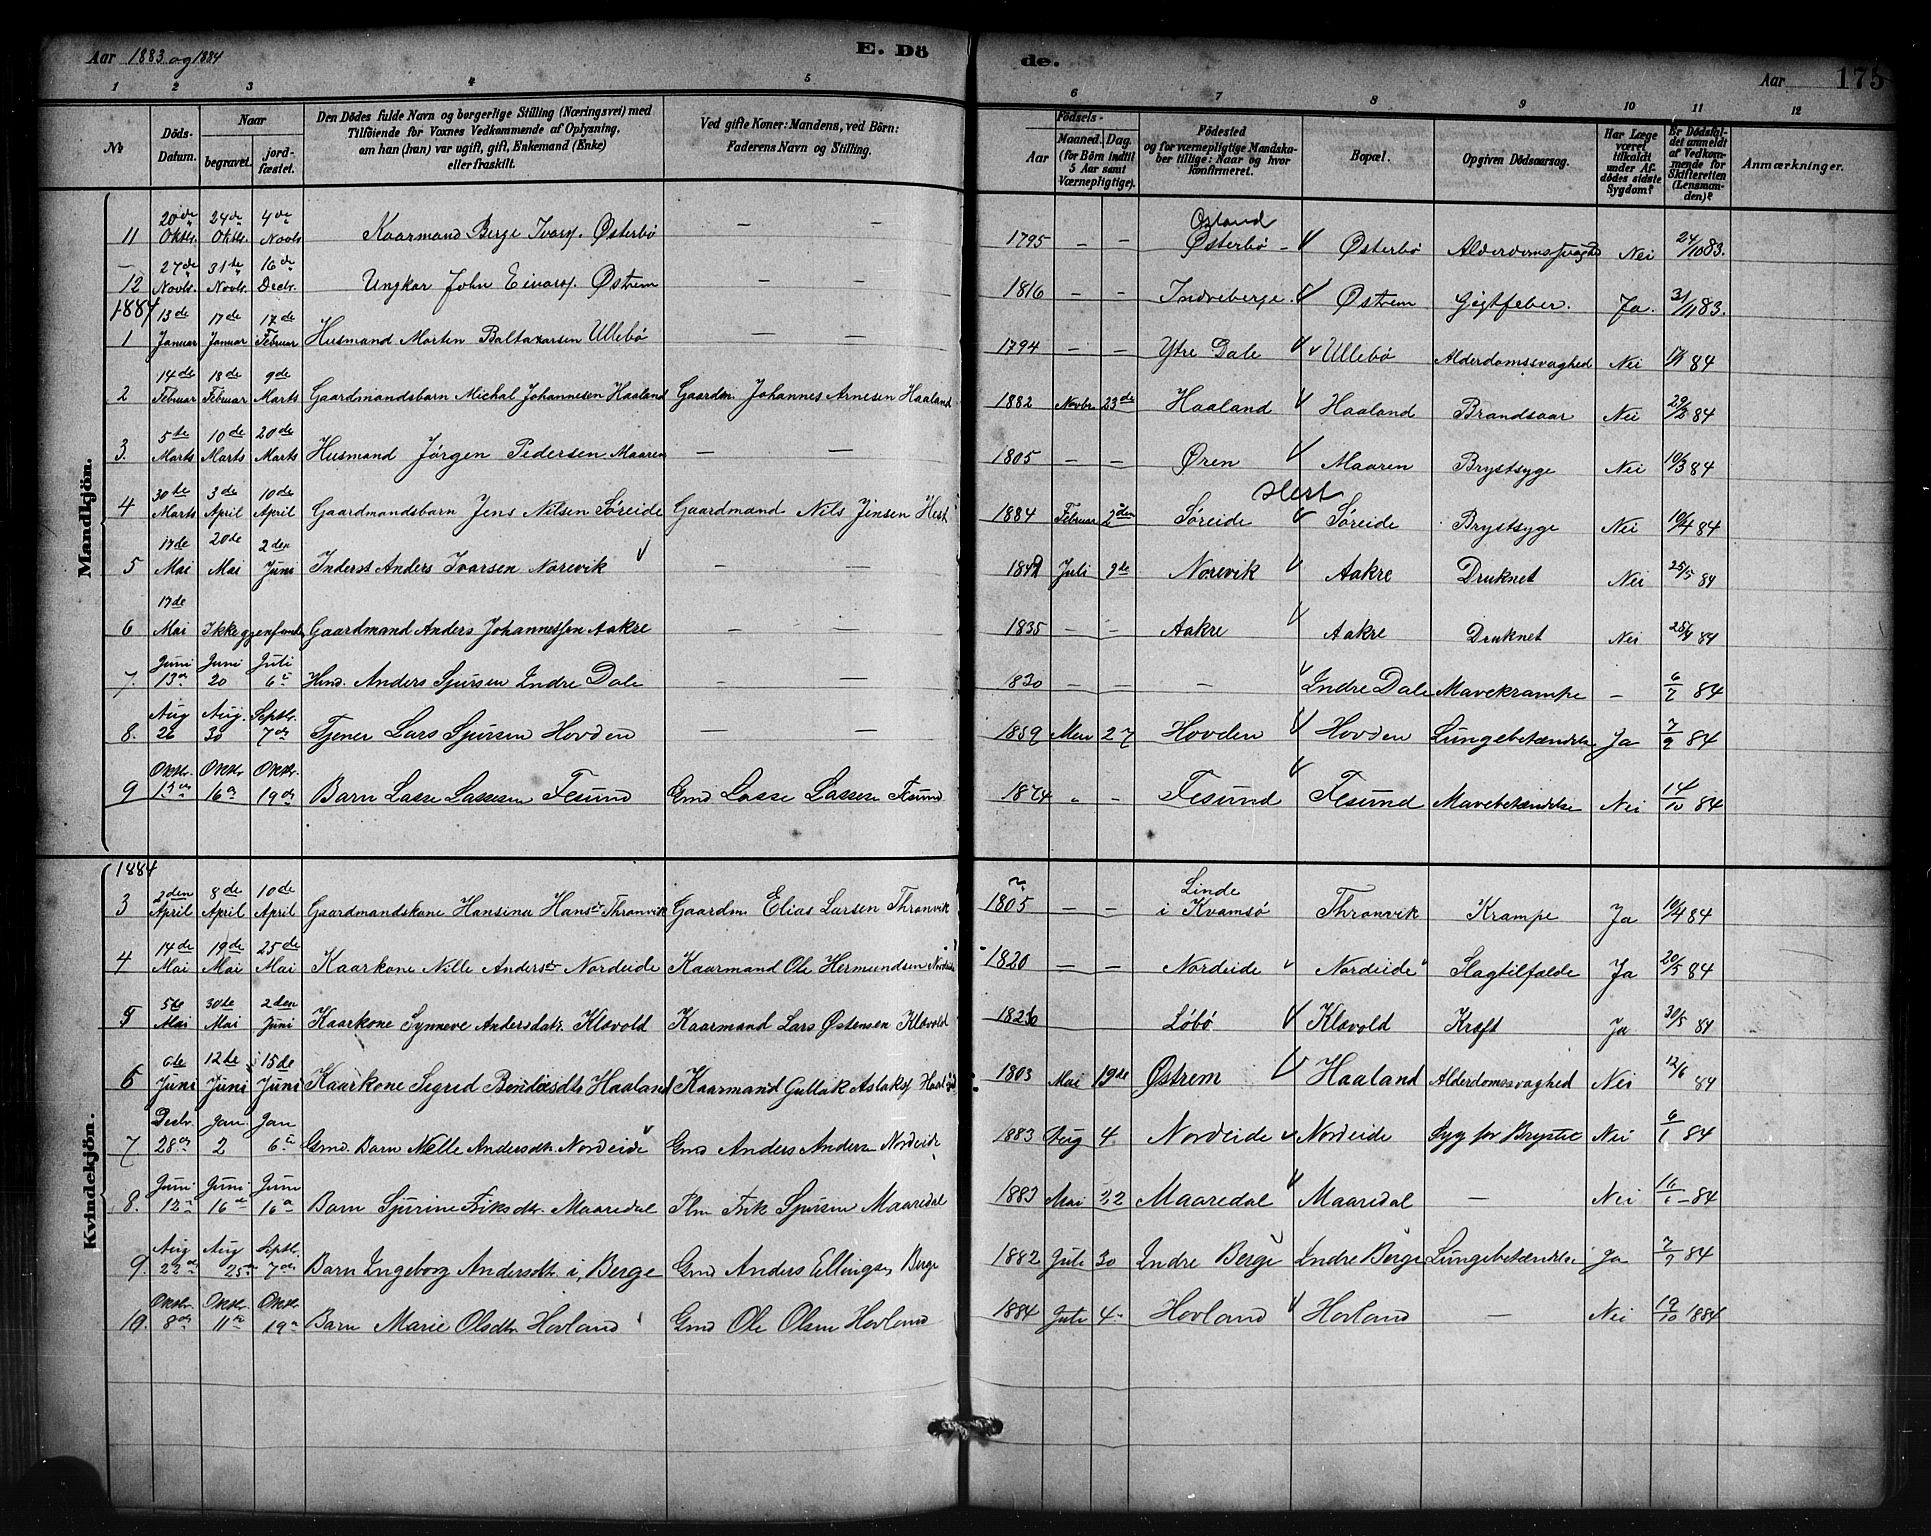 Aar 1883 og 1884 E. Dö de. Aar 175
1 2 3 4 5 6 7 8 9 10 11 12
No Döds-Datum. Naar begravet. jordfæstet. Den Dödes fulde Navn og borgerlige Stilling (Næringsvei) med Tilföiende for Voxnes Vedkommende af Oplysning, om han (hun) var ugift, gift, Enkemand (Enke) eller fraskilt. Ved gifte Koner: Mandens, ved Börn: Faderens Navn og Stilling. Födsels- Aar Maaned. Dag. (for Börn indtil 5 Aar samt Værnepligtige). Födested og for værnepligtige Mandskaber tillige: Naar og hvor konfirmeret. Bopæl. Opgiven Dödsaarsag. Har Læge været tilkaldt under Afdödes sidste Sygdom? Er Dödsfaldet anmeldt af Vedkommende for Skifteretten (Lensmanden)? Anmærkninger.
Mandkjön.
11 20de Oktbr. 24de Oktbr. 4de Novbr. Kaarmand Berge Ivarsj. Østerbø — — 1795 — — Østerbø Østerbø Alderdomssvaghed Nei 24/10 83.
12 27de Novbr. 31te Novbr. 16de Decbr. Ungkar John Eivarsj. Østrem — — 1816 — — Indreberge Østrem Gigtfeber. Ja. 31/11 83.
1884
1 13de Januar 17de Januar 17de Februar Husmand Morten Baltaxarsen Ullebø — — 1794 — — Ytre Dale Ullebø Alderdomssvaghed Nei 84
2 14de Februar 18de Februar 9de Marts Gaardmandsbarn Michal Johannesen Haaland Gaardm. Johannes Arnesen Haaland 1882 Novbr. 23de Haaland Haaland Brandsaar Nei 29/2 84
3. 5te Marts 10de Marts 20de Marts Husmand Jørgen Pedersen Maaren — — 1805 — — Øren Maaren Brystsyge Nei 10/3 84
4 30te Marts 3de April 10de April Gaardmandsbarn Jens Nilsen Søreide Gaardmand Nils Jensen Hest 1884 Februar 2den Hest Søreide Søreide Brystsyge Nei 10/4 84
5 17de Mai 20de Mai 2den Juni Inderst Anders Ivarsen Norevik — — Juli 9de Norevik Aakre Druknet Nei 25/5 84
6 17de Mai Ikke gjenfunden Gaardmand Anders Johannessen Aakre — — 1835 — — Aakre Aakre Druknet Nei 84
7. Juni 13de Juni 20 Juli 6te Hmd. Anders Sjursen Indre Dale — — 1830 — — — Indre Dale Mavekrampe — 6/7 84
8. Aug 26 Aug. 30 Septbr. 7de Tjener Lars Sjursen Hovden — — 1859 27 Hovden Hovden Lungebetændelse Ja 7/9 84
9 Oktbr. 13de Oktbr. 16de Oktbr. 19de Barn Lasse Lassesen Fesund Gmd Lasse Lassesen Fesund 1874 " - Fesund Fesund Mavebetændelse Nei 14/10 84
Kvindekjön.
1884
3 2den April 8de April 10de April Gaardmandskone Hansina Hansdr Thronvik Gaardm. Elias Larsen Thronvik 1805 — — Linde i Kvamsø Thronvik Krampe Ja 10/4 84
4 14de Mai 19de Mai 25de Mai Kaarkone Nille Andersdr Nordeide Kaarmand Ole Hermundsen Nordeide 1820 — — Nordeide Nordeide Slagtilfælde Ja 20/5 84
5 5te Mai 30te Mai 2den Juni Kaarkone Synneve Andersdatr. Klævold Kaarmand Lars Østensen Klævold 1826 Løbø Klævold Kræft Ja 30/5 84
6 6te Juni 12te Juni 15de Juni Kaarkone Sigrid Bendixsdtr Haaland Kaarmand Gullak Aslaksj Haaland 1803 Mai 19de Østrem Haaland Alderdomssvaghed Nei 12/6 84
7 Decbr. 28de Jan. 2 Jan 6te Gmd. Barn Nelle Andersdtr. Nordeide Gmd Anders Andersn Nordeide 1883 Aug 4 Nordeide Nordeide Syg for Brystet Nei 6/1 84
8. Juni 12te Juni 16de Juni 16de Barn Sjurine Eriksdtr. Maaredal Erik Sjursen Maaredal 1883 Mai 22 Maaredal Maaredal — Nei 16/6 84
9. Aug 22de Aug 25de Septbr. 7de Barn Ingeborg Andersdtr. i, Berge Gmd Anders Ellingsen Berge 1882 Juli 30 Indre Berge Indre Berge Lungebetændelse Ja 7/9 84
10. Oktbr. 8de Oktbr. 11te Oktbr. 19de Barn Marie Olsdtr Hovland Gmd Ole Olsen Hovland 1884 Juli 4. Hovland Hovland — Nei 19/10 1884